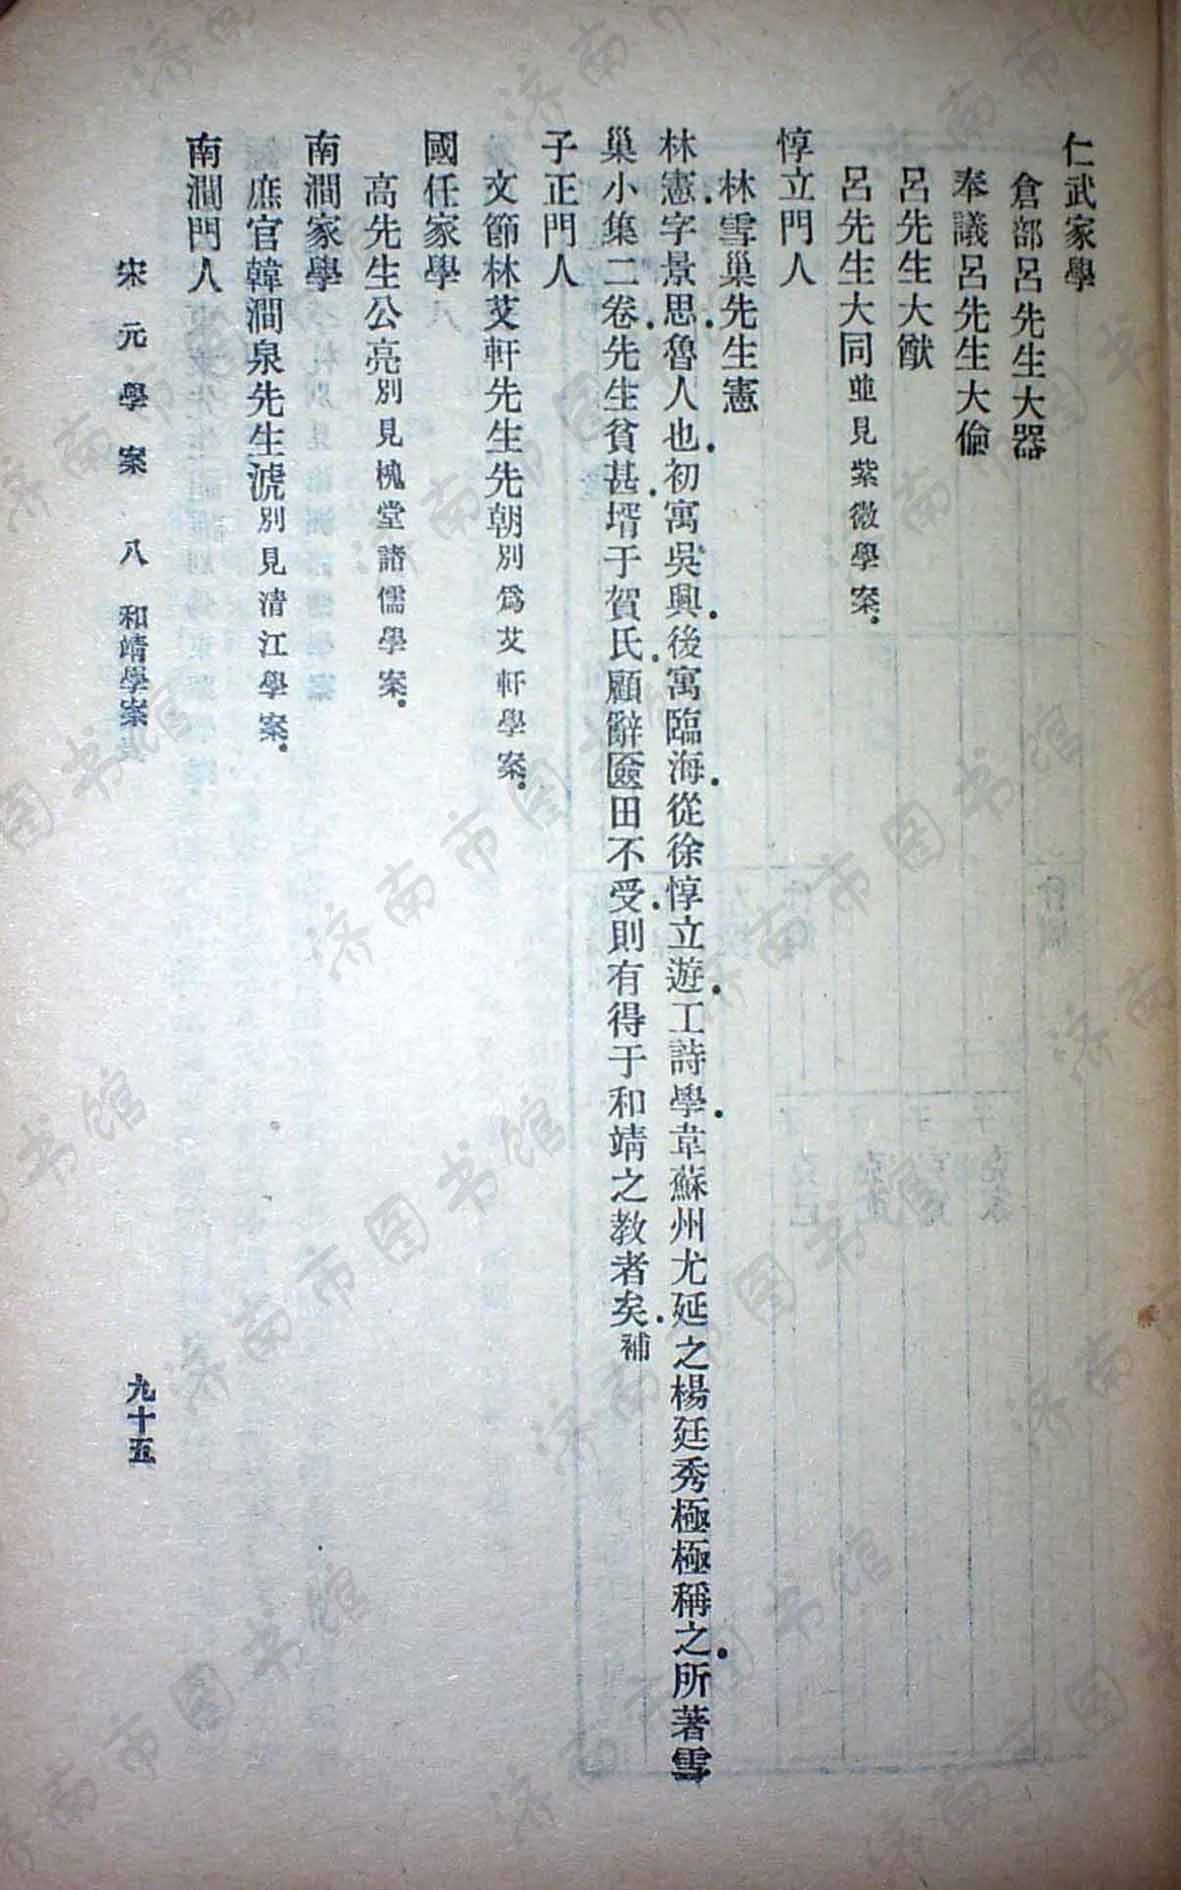 仁武家學
倉部呂先生大器
奉議呂先生大倫
呂先生大猷
呂先生大同並見紫微學案.
惇立門人
林雪巢先生憲
林憲.字景思.魯人也.初寓吳興.後寓臨海.從徐惇立遊.工詩.學韋蘇州.尤延之楊廷秀極極稱之.所著雪
巢小集二卷.先生貧甚.壻于賀氏.顧辭奩田不受.則有得于和靖之教者矣.補
子正門人
文節林艾軒先生先朝別為艾軒學案.
國任家學
高先生公亮別見槐堂諸儒學案.
南澗家學
庶官韓澗泉先生淲別見清江學案.
南澗門人
宋元學案 八 和靖學案 九十五
济南市图书馆